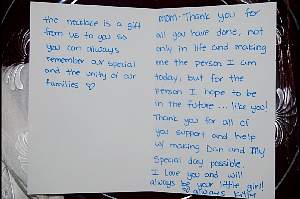 the necklace is a gift
from us to you so
you can always
remember our special
and the unity of our
families ♡
mom- Thank you for
all you have done, not
only in life and making
me the person I am
today, but for the
person I hope to be
in the future... like you!
Thank you for all of
you support and help
w/ making Dan and My
Special day possible.
I Love you and will
always be your little girl!!
♡ always